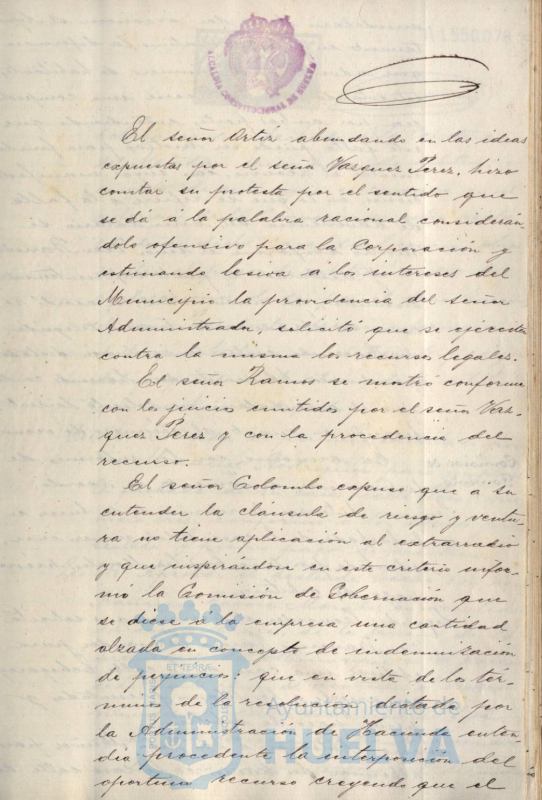 ALCALDIA CONSTITUCIONAL DE HUELVA
1.550.078
El señor Ortiz abundando en las ideas
expuestas por el señor Vazquez Perez, hizo
constar su protesta por el sentido que
se dá á la palabra racional considerán
dolo ofensivo para la Corporación y
estimando lesiva á los intereses del
Municipio la providencia del señor
Administrador, solicitó que se ejerciten
contra la misma los recursos legales.
El señor Ramos se mostró conforme
con los juicios emitidos por el señor Vaz-
quez Perez y con la procedencia del
recurso.
El señor Colombo expuso que a su
entender la cláusula de riesgo y ventu-
ra no tiene aplicación al extrarradio
y que inspirándose en este criterio infor-
mó la Comisión de Gobernación que
se diese a la empresa una cantidad
alzada en concepto de indemnización
de perjuicios: que en vista de los tér-
minos de la resolución dictada por
la Administración de Hacienda enten-
dia procedente la interposición del
oportuno recurso creyendo que el
Ayuntamiento de
HUELVA